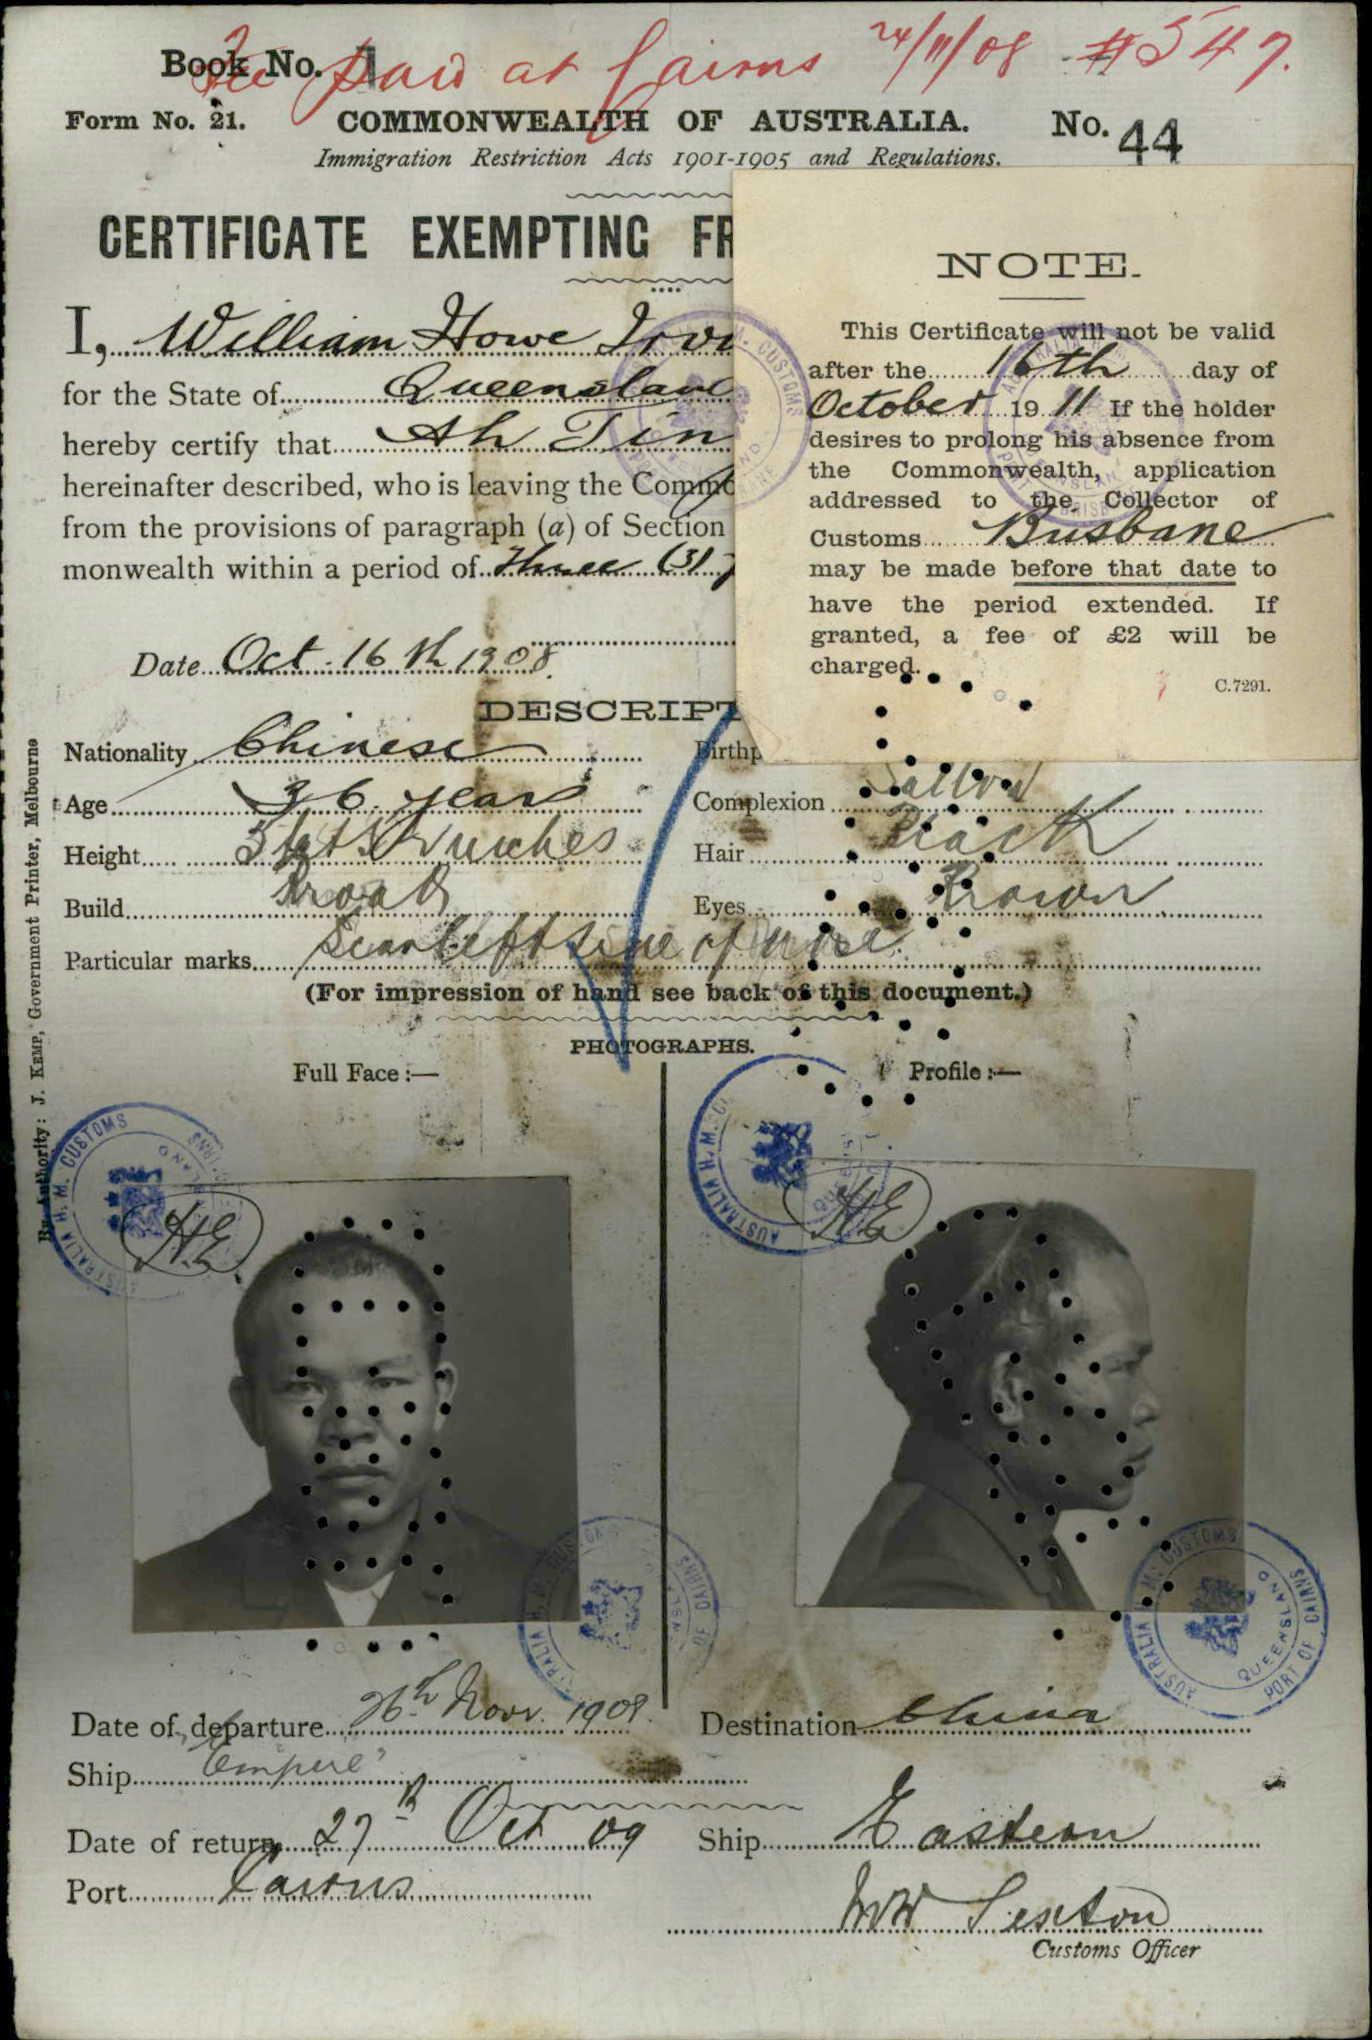 Fee paid at Cairns 24/11/08 #547.
Book No. 1
Form No. 21. COMMONWEALTH OF AUSTRALIA. No. 44
Immigration Restriction Acts 1901-1905 and Regulations.
CERTIFICATE EXEMPTING FR
I, William Howe Irvi
for the State of Queenslan
hereby certify that Ah Tin
hereinafter described, who is leaving the Commo
from the provisions of paragraph (a) of Section
monwealth within a period of Three (3) y
Date Oct. 16th 1908.
NOTE.
This Certificate will not be valid
after the 16th day of
October 1911 If the holder
desires to prolong his absence from
the Commonwealth, application
addressed to the Collector of
Customs Brisbane
may be made before that date to
have the period extended. If
granted, a fee of £2 will be
charged.
C.7291.
DESCRIPT
Nationality Chinese Birthp
Age 36 years Complexion Sallow
Height 5 inches Hair Black
Build Broad Eyes Brown
Particular marks Scar left side of nose.
(For impression of hand see back of this document.)
PHOTOGRAPHS.
Full Face:— Profile:—
AUSTRALIA H. M. CUSTOMS
H.E
AUSTRALIA H. M.
H.E
AUSTRALIA H. M. CUSTOMS QUEENSLAND PORT OF CAIRNS
Date of departure 26th Novr. 1908. Destination China
Ship "Empire"
Date of return 27th Oct 09 Ship Eastern
Port Cairns
WW Sexton
Customs Officer
By Authority: J. KEMP, Government Printer, Melbourne